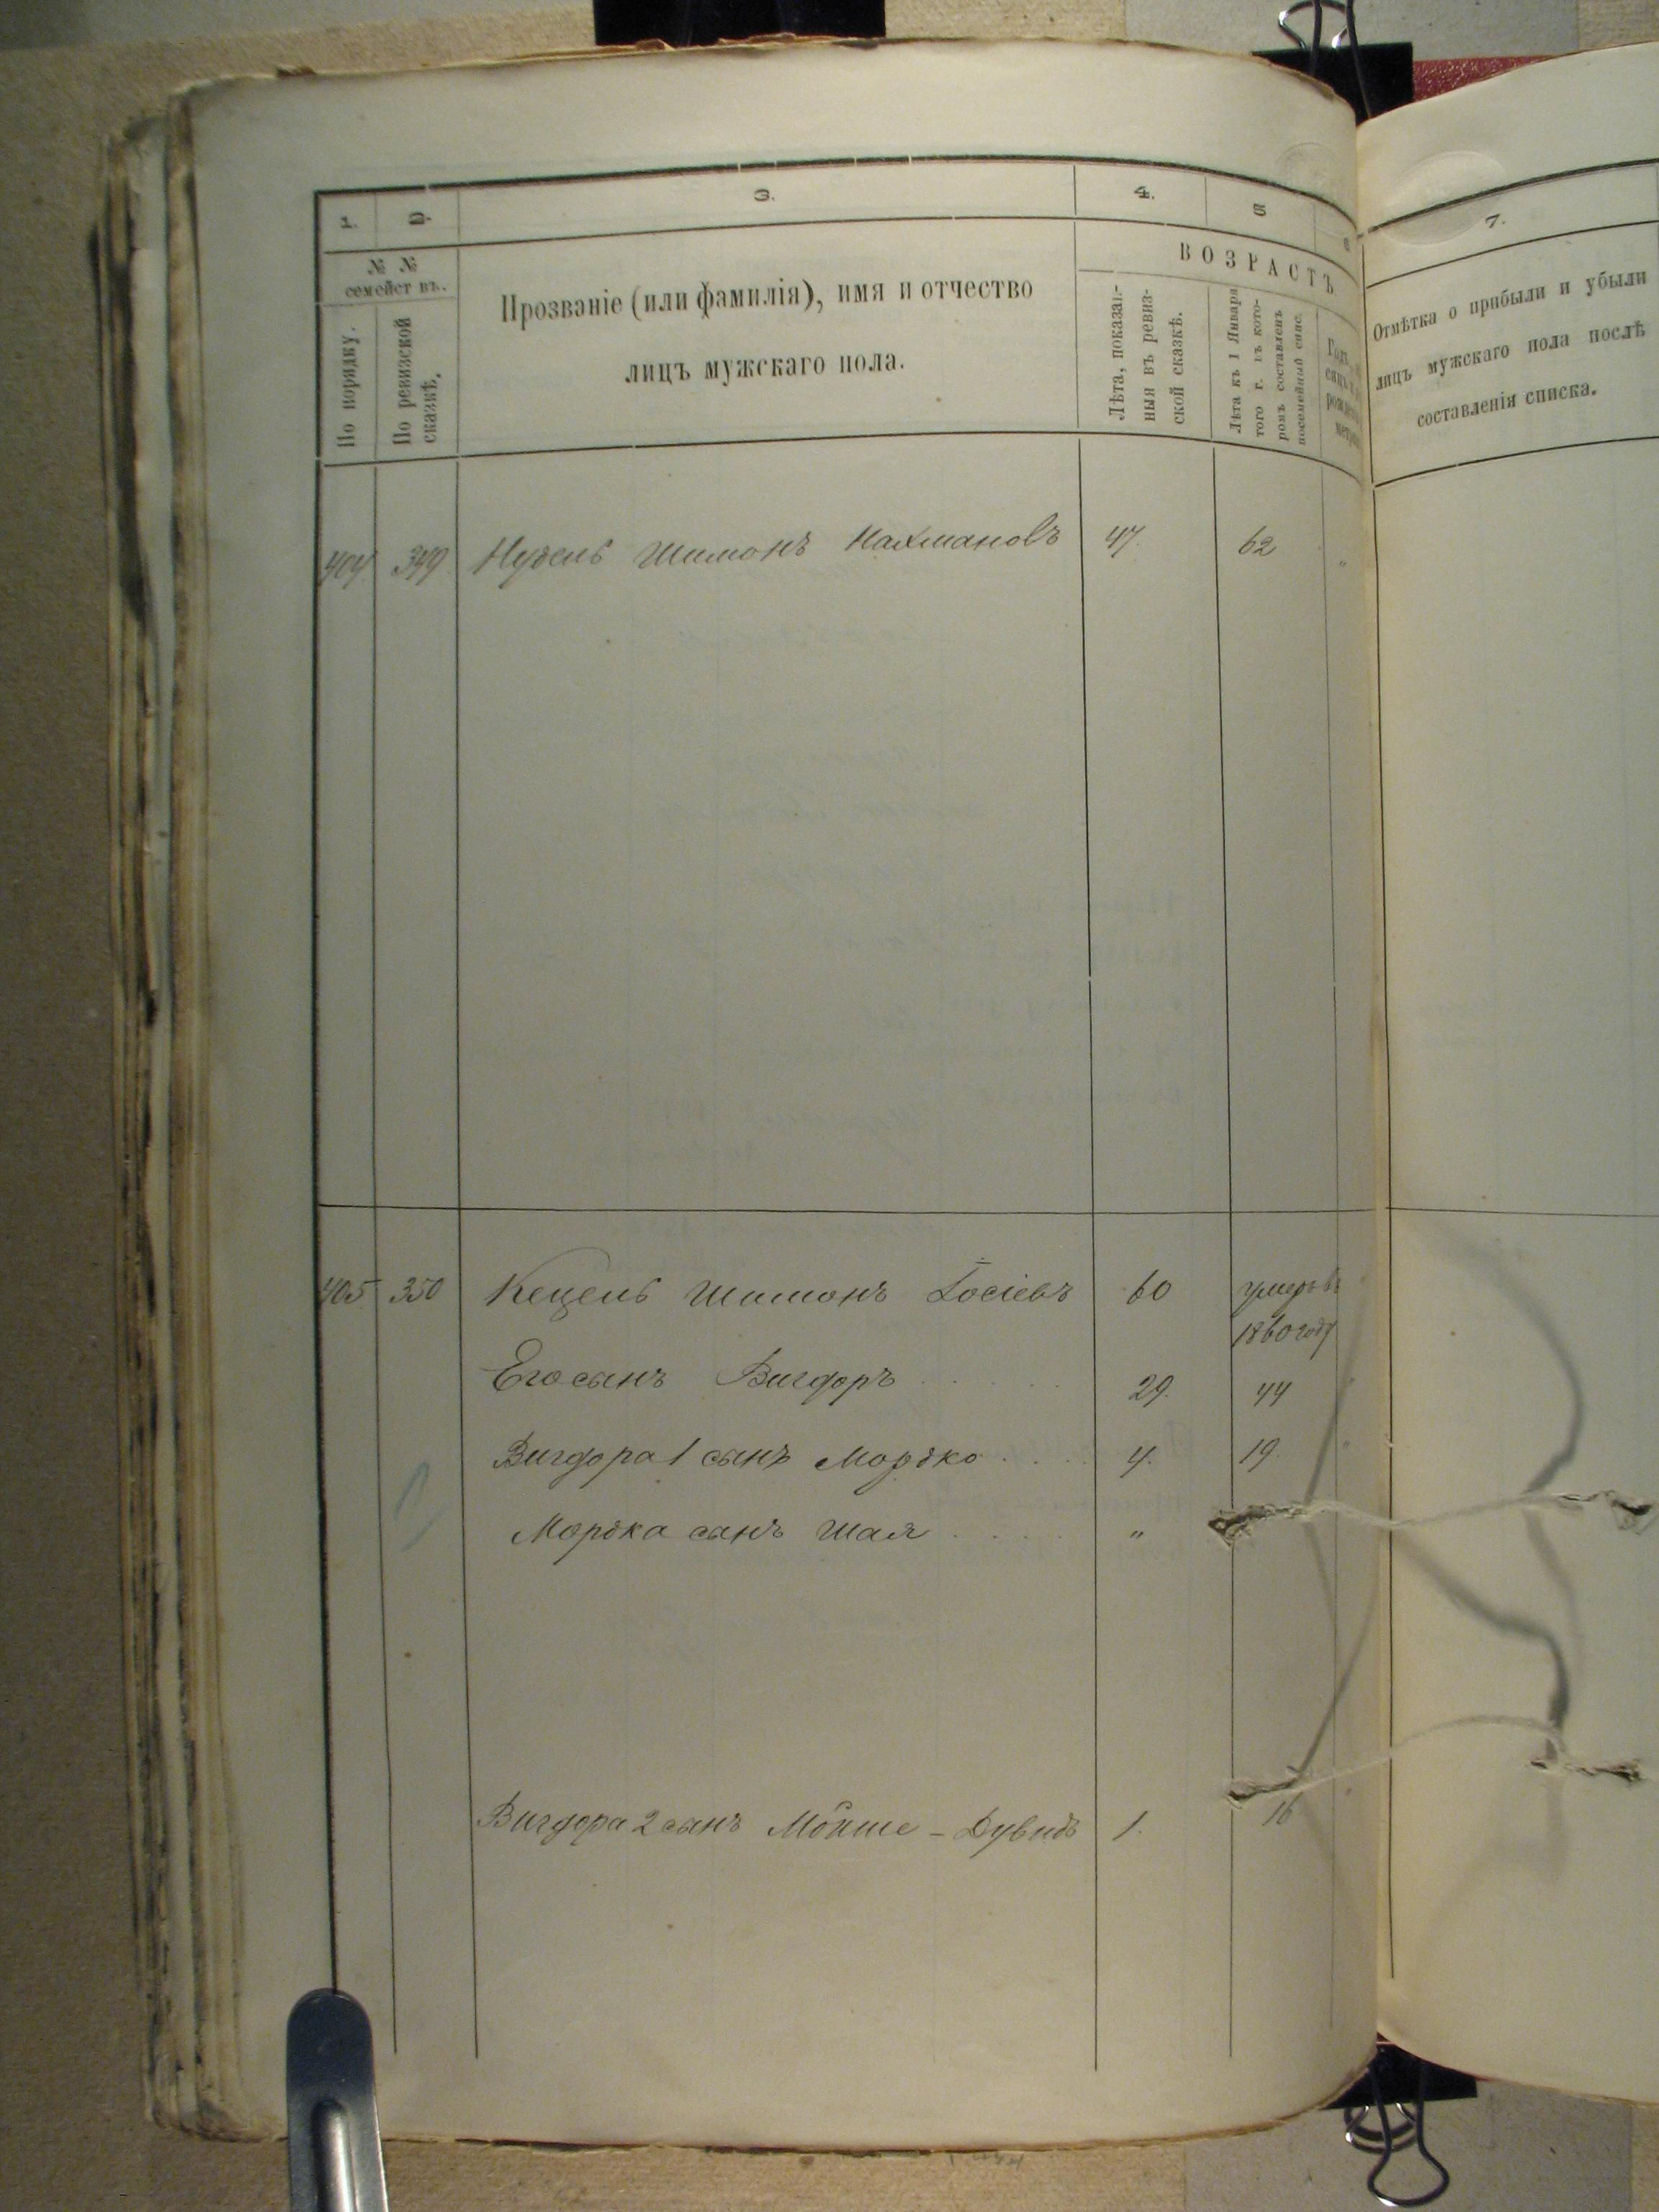 1. 2. 3. 4. 5
№ № семействъ.
По порядку.
По ревизской сказкѣ.
Прозваніе (или фамилія), имя и отчество
лицъ мужскаго пола.
ВОЗРАСТЪ
Лѣта, показан-
ныя въ ревиз-
ской сказкѣ.
Лѣта къ 1 Января
того г. въ кото-
ромъ составленъ
посемейный спис.
7.
Отмѣтка о прибыли и убыли
лицъ мужскаго пола послѣ
составленія списка.
404 349 Нудель Шимонъ Нахмановъ 47. 62 "
405 350 Кецель Шимонъ Іосіевъ 60 умеръ въ
1860 году
Его сынъ Вигдоръ . . . . . 29. 44 "
Вигдора 1 сынъ Мордко . . . . 4. 19. "
Мордка сынъ Шая . . . . . "
Вигдора 2 сынъ Мошше - Дувидъ 1. 16